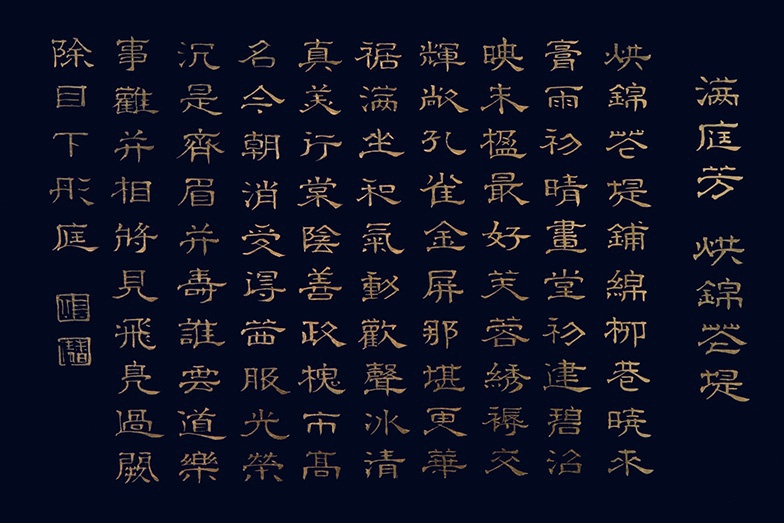 满庭芳 烘錦芲堤
烘錦芲堤鋪綿柳巷曉來
膏雨初晴畫堂初建碧沼
映朱楹最好芙蓉綉褥交
輝敞孔雀金屏那堪更華
裾满坐和氣動歡聲冰清
真美行棠陰善政槐市高
名今朝消受得茜服光榮
沉是齊眉并壽誰雲道樂
事難并相將見飛凫過闕
除目下彤庭